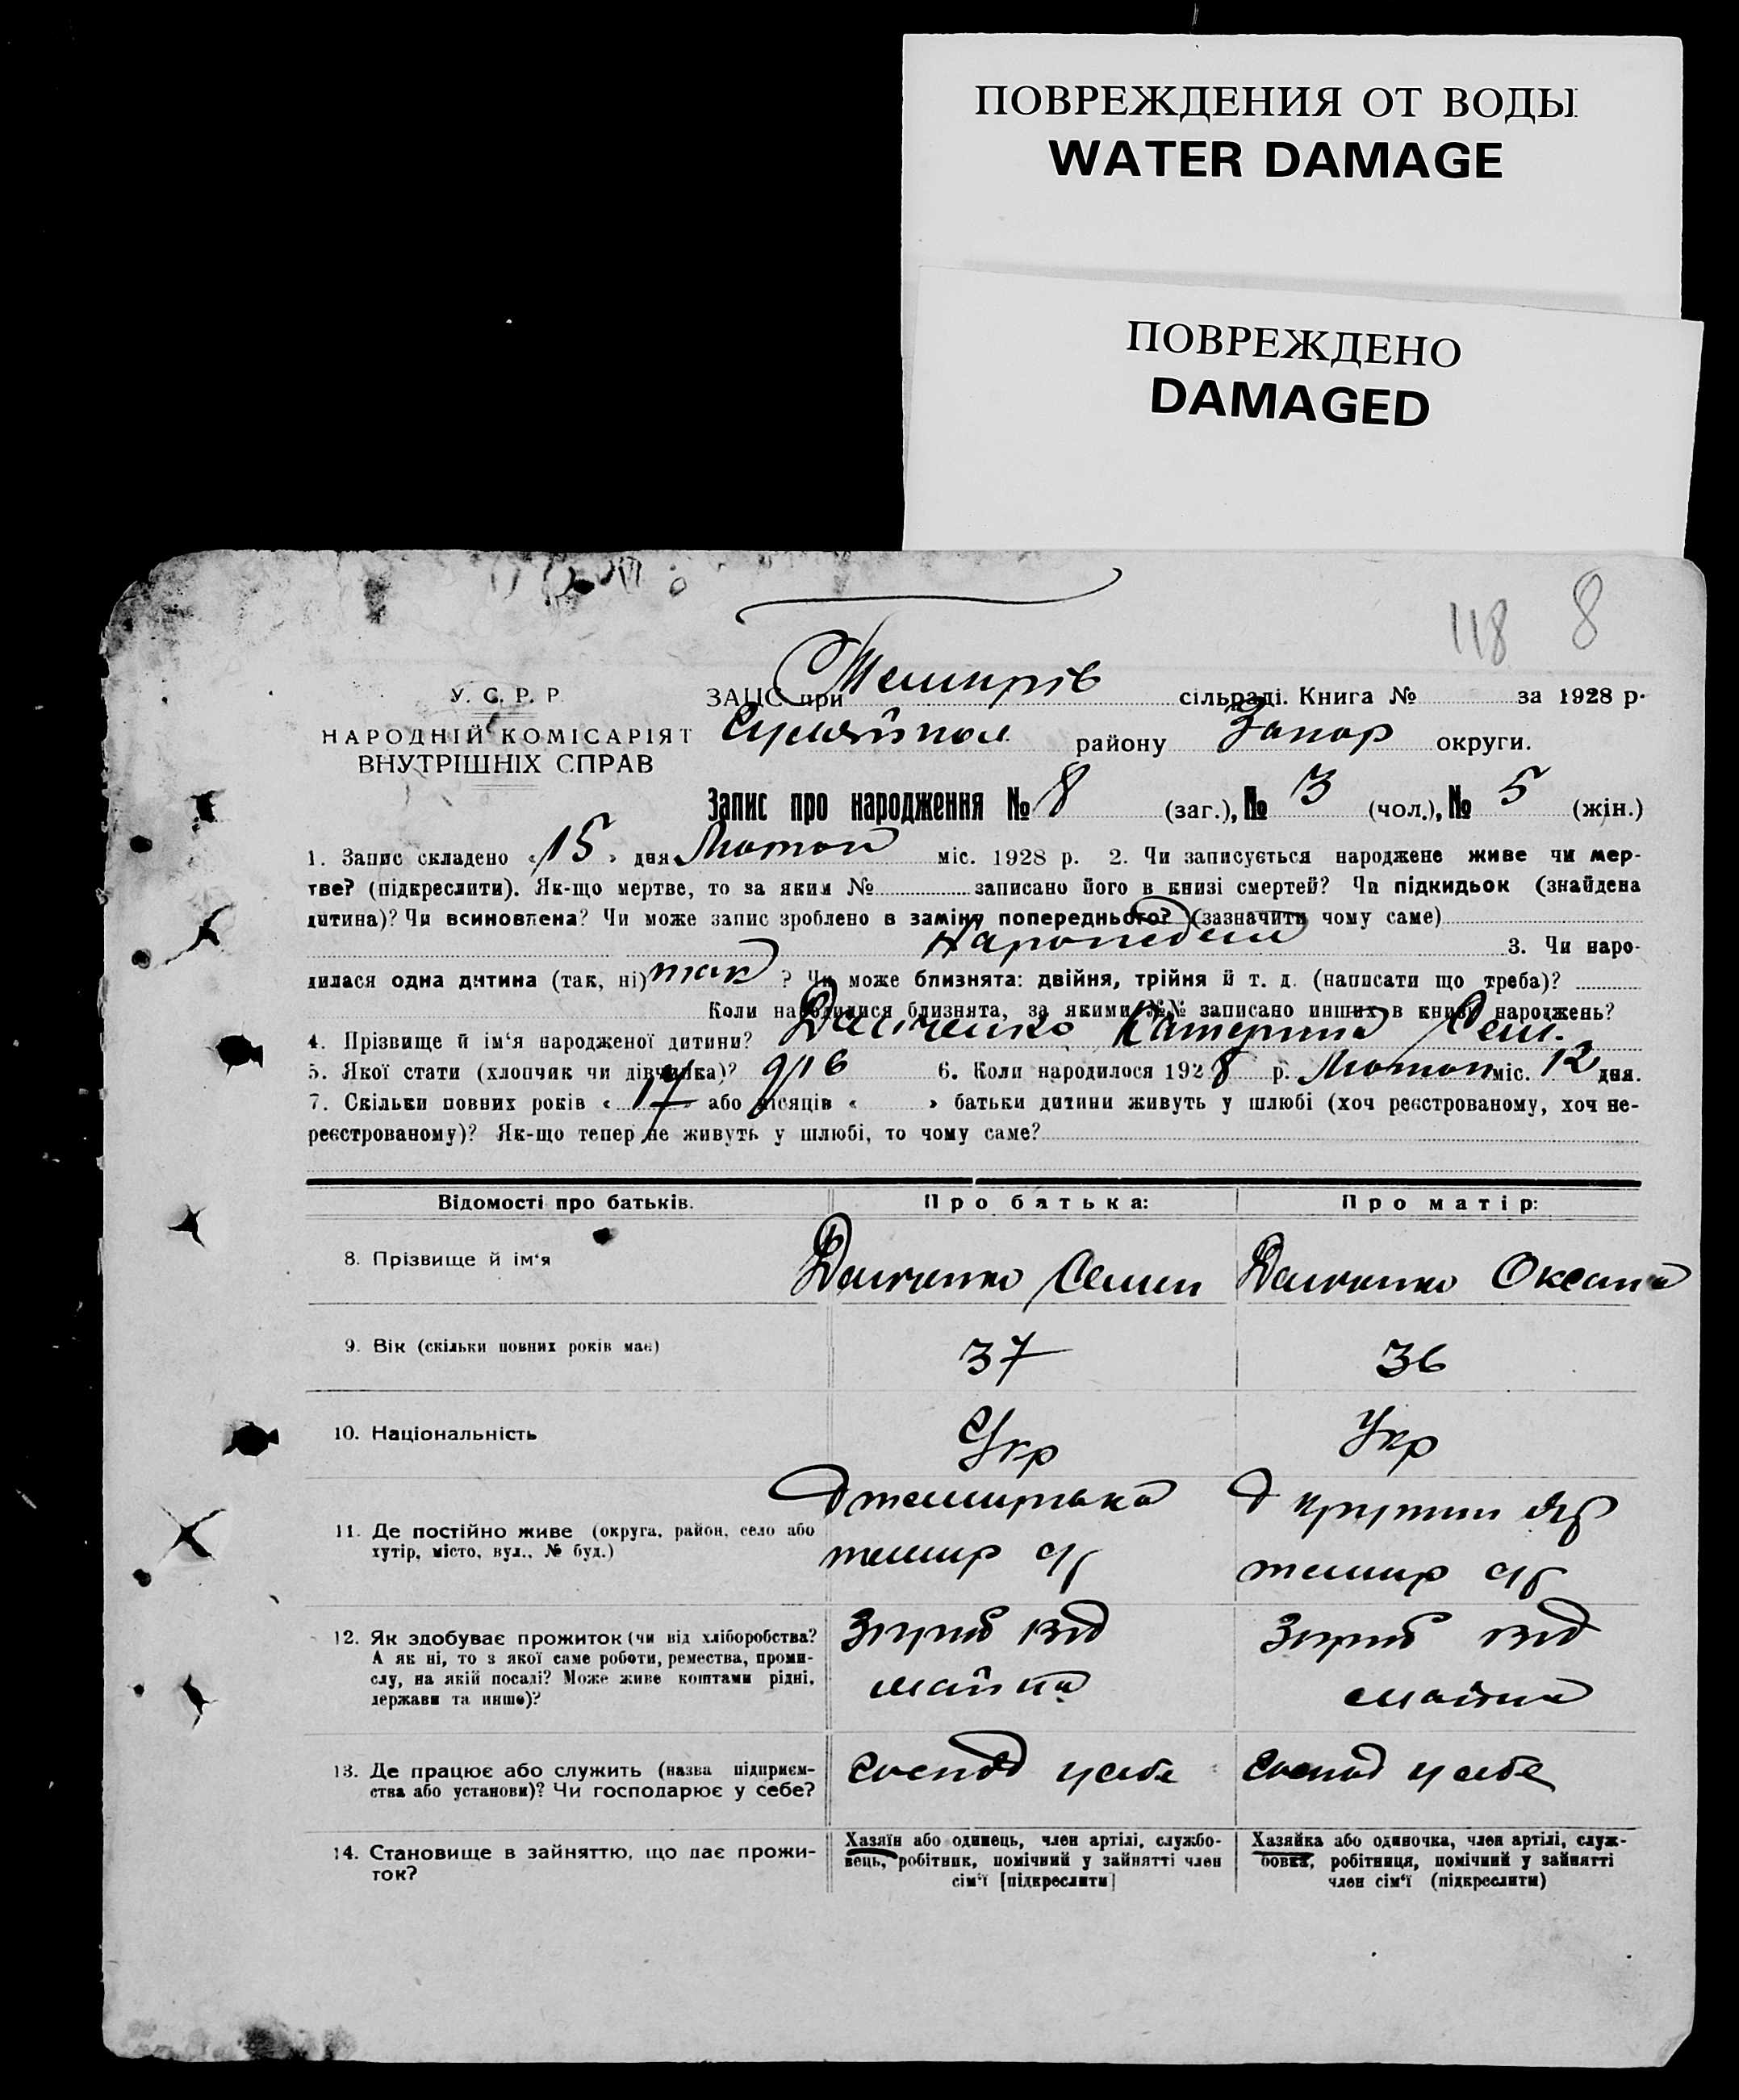 ПОВРЕЖДЕНИЯ ОТ ВОДЫ
WATER DAMAGE
ПОВРЕЖДЕНО
DAMAGED
118 8
У. С. Р. Р.
НАРОДНІЙ КОМІСАРІЯТ
ВНУТРІШНІХ СПРАВ
ЗАЦС при Темирів сільраді. Книга № за 1928 р.
Гуляйпол району Запор округи.
Запис про народження № 8 (заг.), № 3 (чол.), № 5 (жін.)
1. Запис складено «15» дня Лютого міс. 1928 р. 2. Чи записується народжене живе чи мер-
тве? (підкреслити). Як-що мертве, то за яким № записано його в книзі смертей? Чи підкидьок (знайдена
дитина)? Чи всиновлена? Чи може запис зроблено в заміну попереднього? (зазначити чому саме)
3. Чи наро-
дилася одна дитина (так, ні) так ? Чи може близнята: двійня, трійня й т. д. (написати що треба)?
Коли народилися близнята, за якими №№ записано инших в книзі народжень?
4. Прізвище й ім‘я народженої дитини? Катерина Сем.
5. Якої стати (хлопчик чи дівчинка)? 6. Коли народилося 1928 р. Лютого міс. 12 дня.
7. Скільки повних років «17» або місяців « » батьки дитини живуть у шлюбі (хоч реєстрованому, хоч не-
реєстрованому)? Як-що тепер не живуть у шлюбі, то чому саме?
Відомості про батьків. Про батька: Про матір:
8. Прізвище й ім‘я Семен Оксана
9. Вік (скільки повних років має) 37 36
10. Національність Укр Укр
11. Де постійно живе (округа, район, село або
хутір, місто, вул., № буд.)
темир с/р темир с/р
12. Як здобуває прожиток (чи від хліборобства?
А як ні, то з якої саме роботи, ремества, проми-
слу, на якій посаді? Може живе коштами рідні,
держави та инше)?
13. Де працює або служить (назва підприєм-
ства або установи)? Чи господарює у себе?
Господ у себе Господ у себе
14. Становище в зайняттю, що дає прожи-
ток?
Хазяїн або одинець, член артілі, службо-
вець, робітник, помічний у зайнятті член
сім‘ї [підкреслити]
Хазяйка або одиночка, член артілі, служ-
бовка, робітниця, помічний у зайнятті
член сім‘ї (підкреслити)